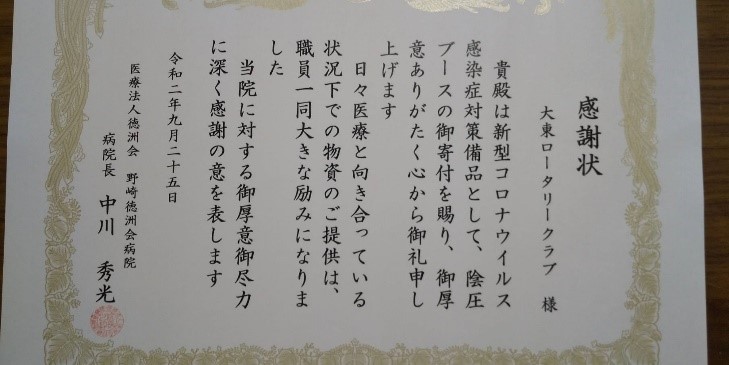 感謝状
大東ロータリークラブ 様
貴殿は新型コロナウイルス
感染症対策備品として、陰圧
ブースの御寄付を賜り、御厚
意ありがたく心から御礼申し
上げます
日々医療と向き合っている
状況下での物資のご提供は、
職員一同大きな励みになりま
した
当院に対する御厚意御尽力
に深く感謝の意を表します
令和二年九月二十五日
医療法人徳洲会 野崎徳洲会病院
病院長 中川 秀光